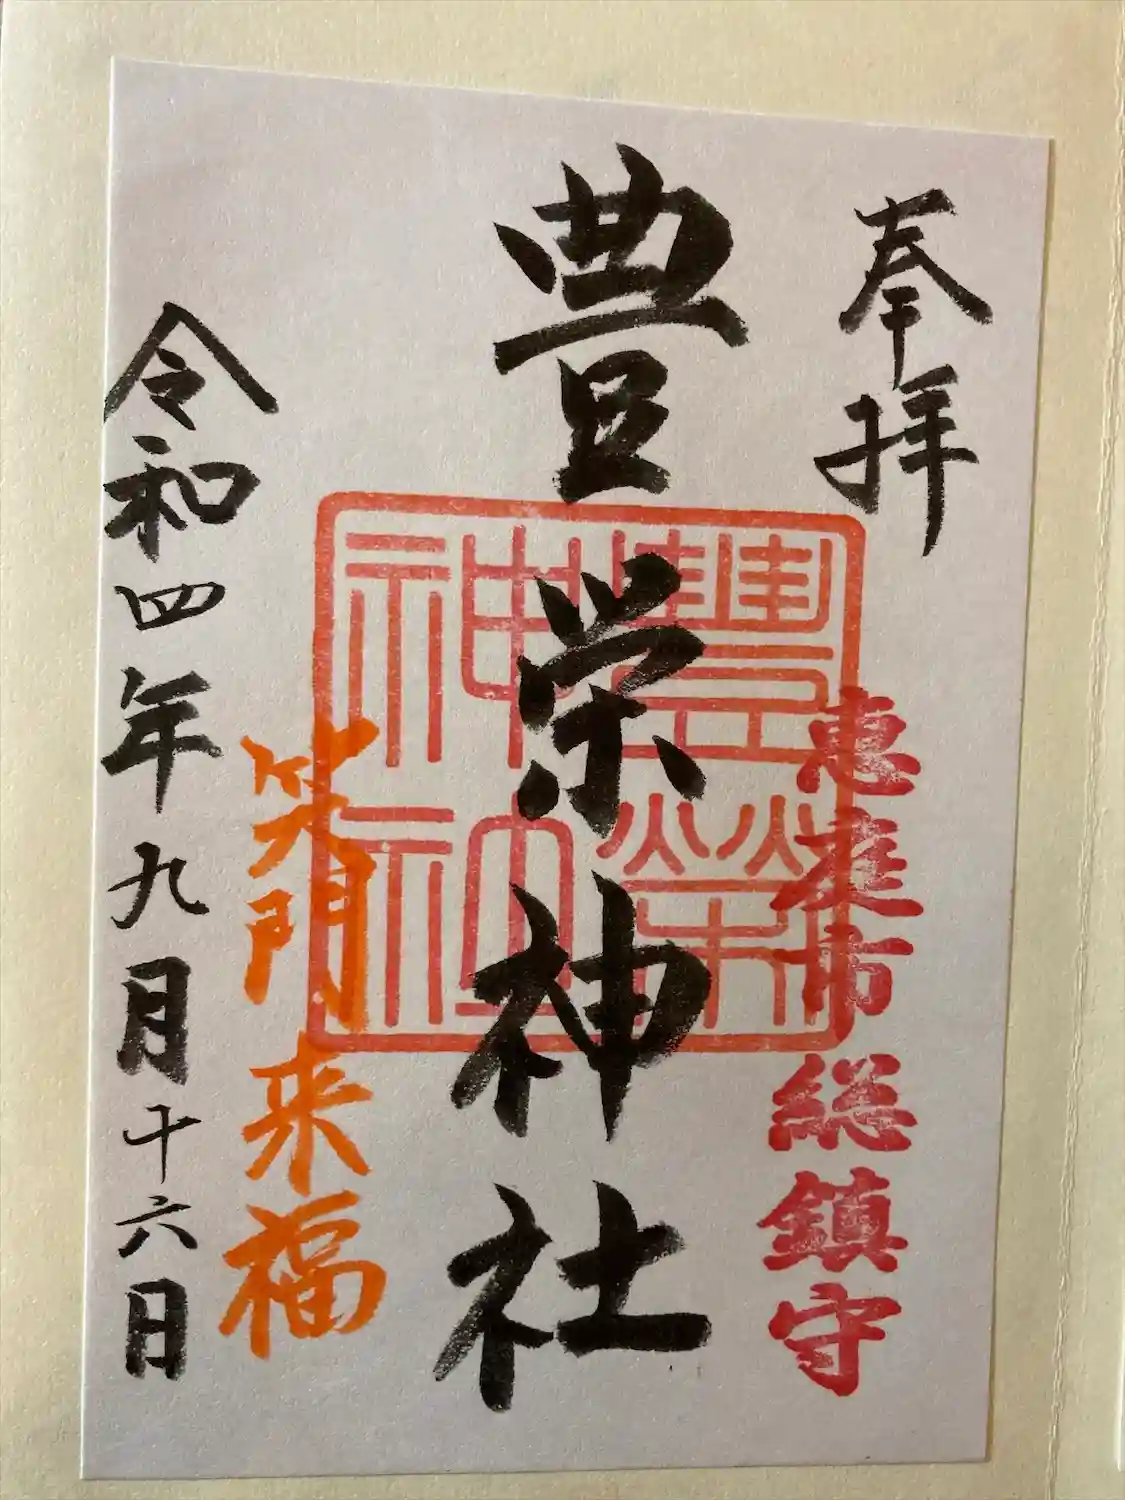 奉拝
恵庭市総鎮守
豊栄神社
豊榮神社
笑門来福
令和四年九月十六日